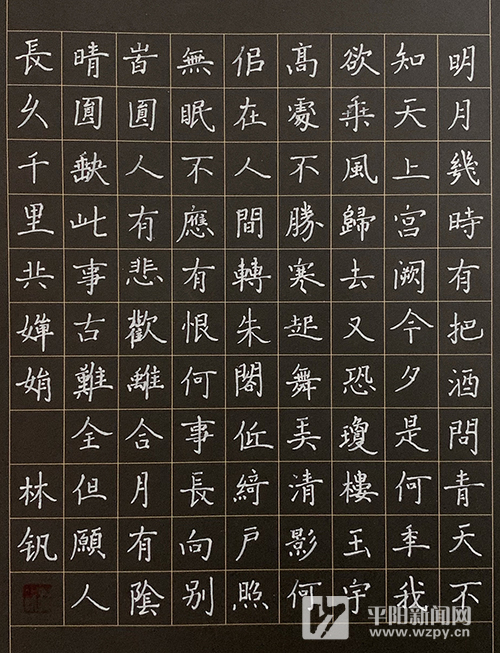 明月幾時有把酒問青天不
知天上宮闕今夕是何年我
欲乘風歸去又恐瓊樓玉宇
高處不勝寒起舞弄清影何
佀在人間轉朱閣低綺戶照
無眠不應有恨何事長向别
旹圓人有悲歡離合月有陰
晴圓缺此事古難全但願人
長久千里共嬋娟
林钒
平阳新闻网
www.wzpy.cn